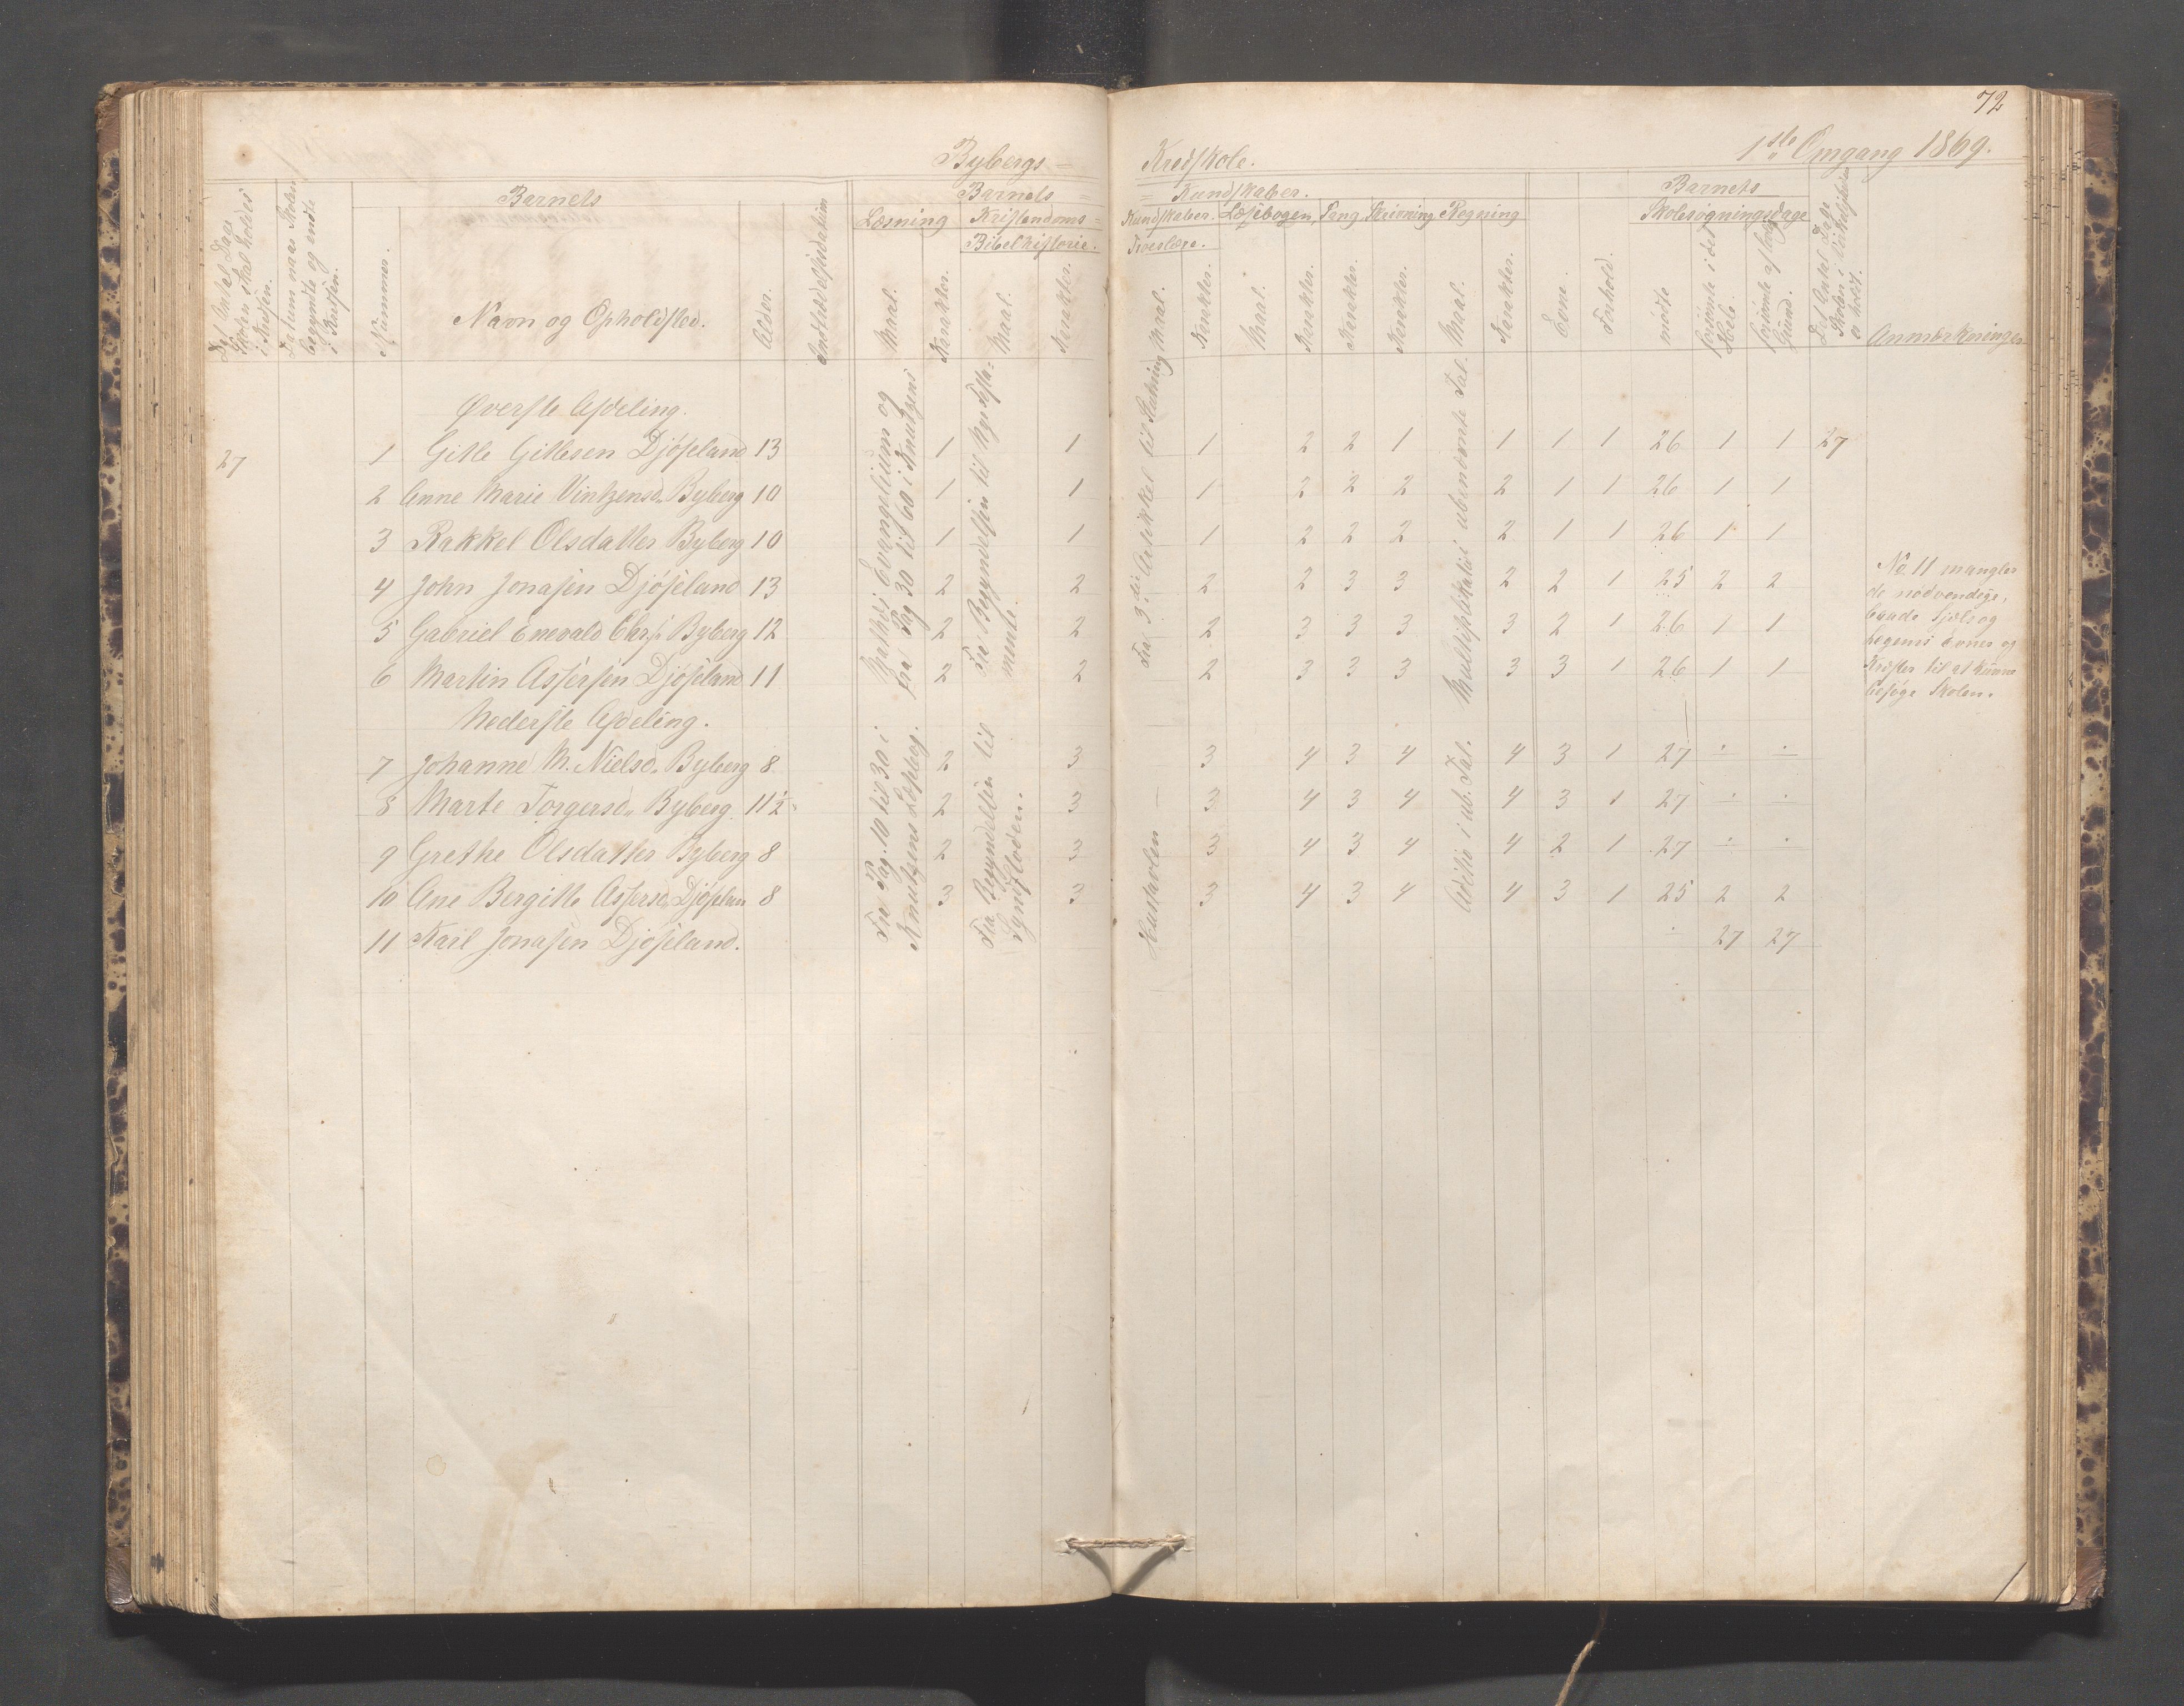 72
Bybergs=
Kredsskole.
1ste Omgang 1869.
Det Antal Dage Skolen skal holdes i Kredsen.
Datum naar Skolen begyndte og endte i Kredsen.
Barnets
Nummer.
Navn og Opholdssted.
Alder.
Indtrædelsesdatum
Barnets =
Læsning
Maal.
Karakter.
Kristendoms=
Bibelhistorie.
Maal.
Karakter.
= Kundskaber.
Kundskaber.
Troeslære.
Maal.
Karakter.
Læsebogen,
Maal.
Karakter.
Sang,
Karakter.
Skrivning
Karakter.
Regning
Maal.
Karakter.
Evne.
Forhold.
Barnets
Skolesøgningsdage
mødte
forsømte i det Hele
forsømte af lovlig Grund.
Det Antal Dage Skolen i Virkeligheden er holdt.
Anmærkninger
Øverste Afdeling.
27 1 Gitle Gitlesen Djøseland 13 1 1 1 2 2 1 1 1 1 26 1 1 27
2 Anne Marie Vintzensd. Byberg 10 1 1 1 2 2 2 2 1 1 26 1 1
3 Rakkel Olsdatter Byberg 10 1 1 1 2 2 2 2 1 1 26 1 1
4 John Jonasen Djøseland 13 2 2 2 2 3 3 2 2 1 25 2 2
5 Gabriel Enevald Byberg 12 2 2 2 3 3 3 3 2 1 26 1 1
6 Martin Assersen Djøseland 11 2 2 2 3 3 3 3 3 1 26 1 1
Nederste Afdeling.
7 Johanne M. Nielsd. Byberg 8 2 3 3 4 3 4 4 3 1 27 ÷ ÷
8 Marte Torgersd. Byberg 11 1/2 2 3 3 4 3 4 4 3 1 27 ÷ ÷
9 Grethe Olsdatter Byberg 8 2 3 3 4 3 4 4 2 1 27 ÷ ÷
10 Ane Bergitte Assersd. Djøselan 8 3 3 3 4 3 4 4 3 1 25 2 2
11 Karl Jonasen Djøseland. 27 27
Mathæi Evangelium og
fra Pag 30 til 60 i Knutzens
Fra Pag. 10 til 30 i
Knutzens Læsebog.
Fra Begyndelsen til Nye Testa=
mente.
Fra Begyndelsen til
Syndfloden.
Fra 3die Artikkel til Slutning
Huustavlen —
Multiplikatio i ubenævnte Tal.
Aditio i ub. Tal.
No. 11 mangler
de nødvendige,
baade Sjæls og
Legems Evner og
Kræfter til at kunne
besøge Skolen.